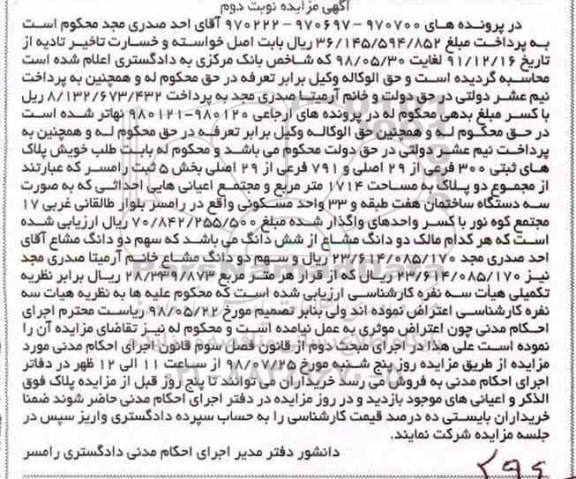 آگهی مزایده نوبت دوم
در پرونده های ۹۷۰۷۰۰ – ۹۷۰۶۹۷ – ۹۷۰۲۲۲ آقای احد صدری مجد محکوم است
به پرداخت مبلغ ۳۶/۱۴۵/۵۹۴/۸۵۲ ریال بابت اصل خواسته و خسارت تاخیر تادیه از
تاریخ ۹۱/۱۲/۱۶ لغایت ۹۸/۰۵/۳۰ که شاخص بانک مرکزی به دادگستری اعلام شده است
محاسبه گردیده است و حق الوکاله وکیل برابر تعرفه در حق محکوم له و همچنین به پرداخت
نیم عشر دولتی در حق دولت و خانم آرمیتا صدری مجد به پرداخت ۸/۱۳۲/۶۷۳/۴۳۲ ریال
با کسر مبلغ بدهی محکوم له در پرونده های ارجاعی ۹۸۰۱۲۰-۹۸۰۱۲۱ تهاتر شده است
در حق محکوم له و همچنین حق الوکاله وکیل برابر تعرفه در حق محکوم له و همچنین به
پرداخت نیم عشر دولتی در حق دولت محکوم می باشد و محکوم له بابت طلب خویش پلاک
های ثبتی ۳۰۰ فرعی از ۲۹ اصلی و ۷۹۱ فرعی از ۲۹ اصلی بخش ۵ ثبت رامسر که عبارتند
از مجموع دو پلاک به مساحت ۱۷۱۴ متر مربع و مجتمع اعیانی هایی احداثی که به صورت
سه دستگاه ساختمان هفت طبقه و ۳۳ واحد مسکونی واقع در رامسر بلوار طالقانی غربی ۱۷
مجتمع کوه نور با کسر واحدهای واگذار شده مبلغ ۷۰/۸۴۲/۲۵۵/۵۰۰ ریال ارزیابی شده
است که هر کدام مالک دو دانگ مشاع از شش دانگ می باشد که سهم دو دانگ مشاع آقای
احد صدری مجد ۲۳/۶۱۴/۰۸۵/۱۷۰ ریال و سهم دو دانگ مشاع خانم آرمیتا صدری مجد
نیز ۲۳/۶۱۴/۰۸۵/۱۷۰ ریال که از قرار هر متر مربع ۲۸/۳۳۹/۸۷۳ ریال برابر نظریه
تکمیلی هیأت سه نفره کارشناسی ارزیابی شده است که محکوم علیه ها به نظریه هیات سه
نفره کارشناسی اعتراض نموده اند ولی بنابر تصمیم مورخ ۹۸/۰۵/۲۲ ریاست محترم اجرای
احکام مدنی چون اعتراض موثری به عمل نیامده است و محکوم له نیز تقاضای مزایده آن را
نموده است علی هذا در اجرای مبحث دوم از قانون فصل سوم قانون اجرای احکام مدنی مورد
مزایده از طریق مزایده روز پنج شنبه مورخ ۹۸/۰۸/۲۵ از ساعت ۱۱ الی ۱۲ ظهر در دفاتر
اجرای احکام مدنی به فروش می رسد خریداران می توانند تا پنج روز قبل از مزایده پلاک فوق
الذکر و اعیانی های موجود بازدید و در روز مزایده در دفتر اجرای احکام مدنی حاضر شوند ضمنا
خریداران بایستی ده درصد قیمت کارشناسی را به حساب سپرده دادگستری واریز سپس در
جلسه مزایده شرکت نمایند.
دانشور دفتر مدیر اجرای احکام مدنی دادگستری رامسر